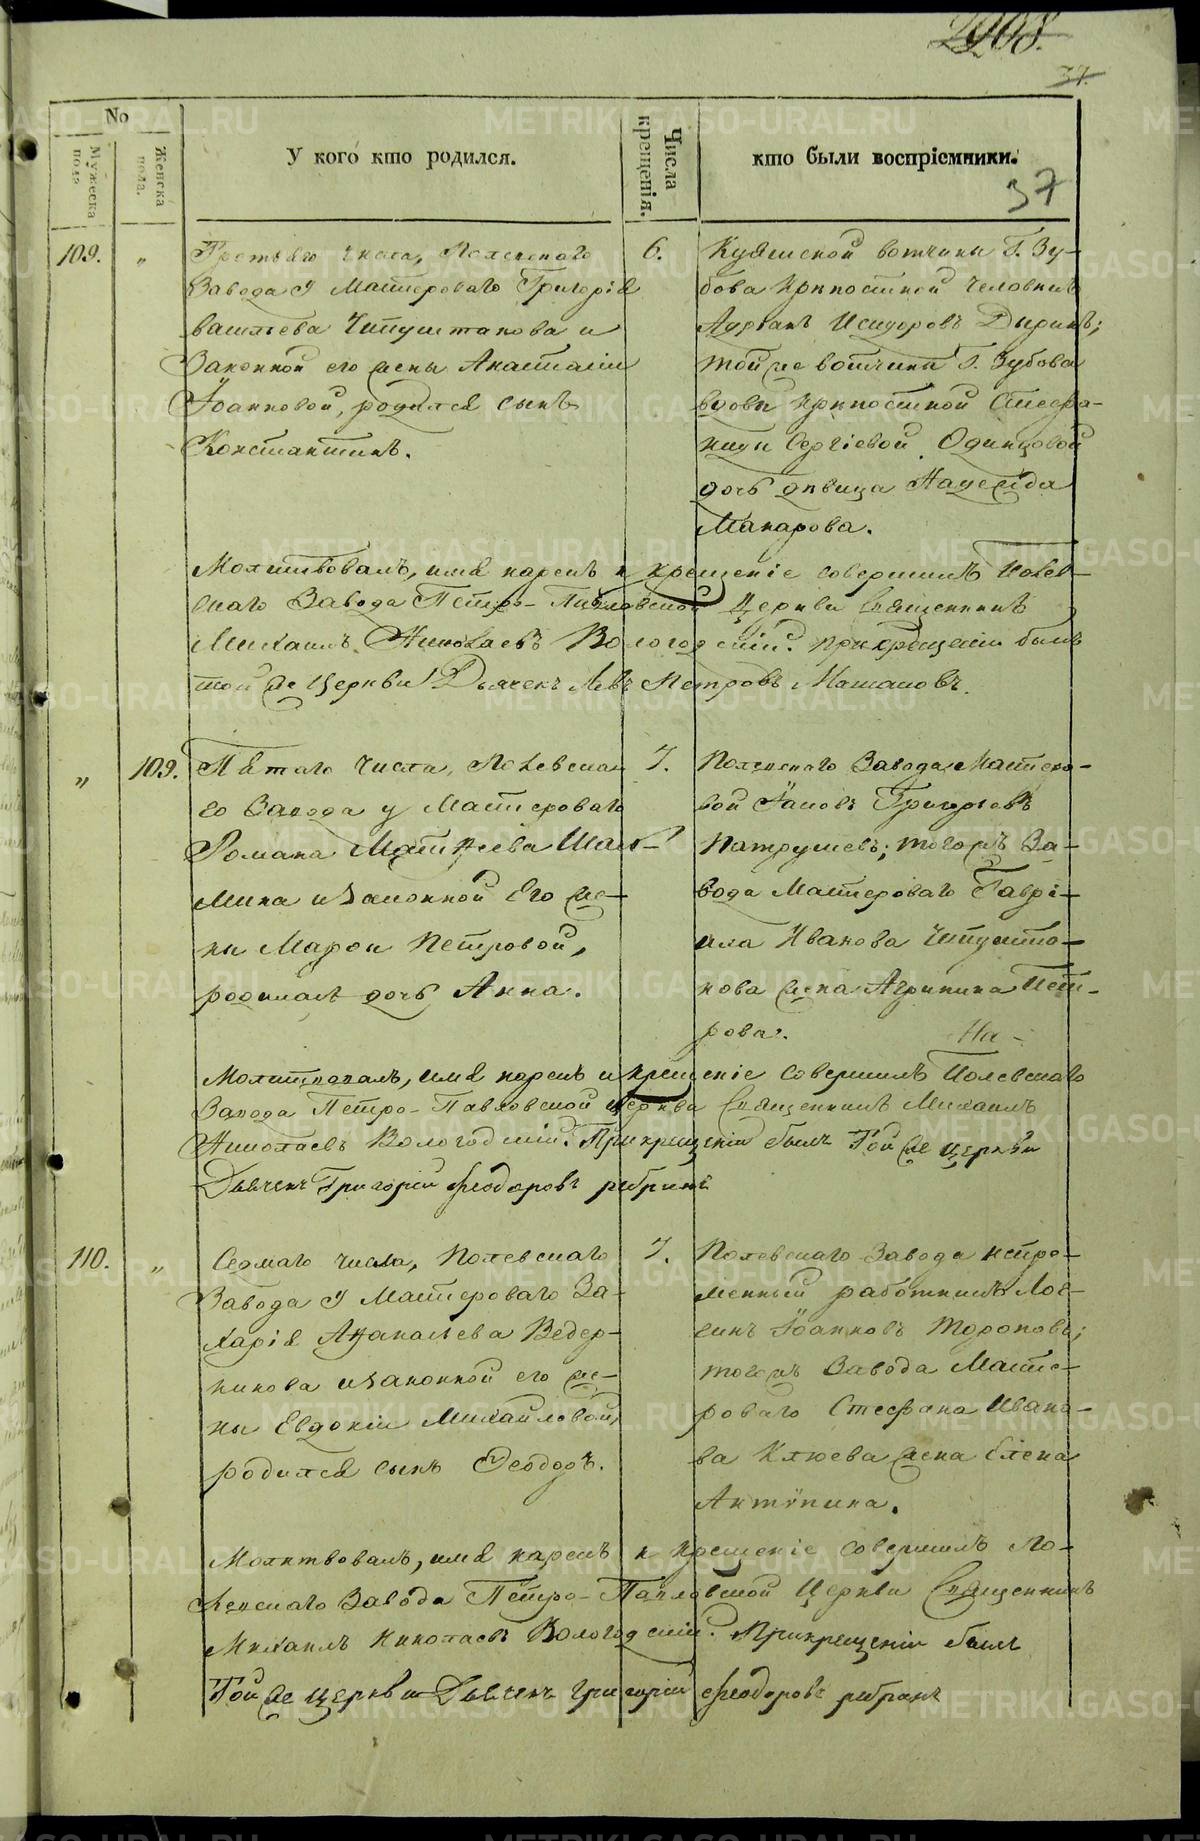 37.
№
Мужеска пола
Женска пола.
У кого кто родился.
Числа крещенія.
кто были воспріемники.
37
109. „
Третьяго числа, Полевскаго
Завода У Мастероваго Григорія
Васильева Чипуштанова и
Законной его жены Анастасіи
Іоанновой, родился сынъ
Константинъ.
6.
вотчины Г. Зу-
бова крѣпостной человѣкъ
Адріанъ Исидоровъ Дыринъ;
той же вотчины Г. Зубова
вдовы крѣпостной Стефа-
ниды Сергіевой Одинцовой
дочь дѣвица Надежда
Макарова.
Молитвовалъ, имя нарекъ и крещеніе совершилъ Полев-
скаго Завода Петро-Павловской Церкви Священникъ
Михаилъ Николаевъ Вологодскій. При крещеніи былъ
той же Церкви Дьячекъ Левъ Петровъ
„ 109.
Пятаго Числа, Полевска
го Завода у Мастероваго
Романа Матѳеева Шала-
мина и Законной Его же-
ны Марѳы Петровой,
родилась дочь Анна.
7.
Полевскаго Завода Мастеро-
вой Іаковъ Григорьевъ
Патрушевъ; тогожъ За-
вода Мастероваго Гаврі-
ила Иванова Чипушта-
нова жена Агрипина Пет-
рова.
На-
Молитвовалъ, имя нарекъ и крещеніе совершилъ Полевскаго
Завода Петро-Павловской церкви Священникъ Михаилъ
Николаевъ Вологодскій. При крещеніи былъ Той же церкви
Дьячекъ Григорій Феодоровъ
110. „
Седмаго числа, Полевскаго
Завода У Мастероваго За-
харія Аѳанасьева Ведер-
никова и Законной его же-
ны Евдокіи Михайловой,
родился сынъ Ѳеодоръ.
7.
Полевскаго Завода
работникъ Лог-
гинъ Іоанновъ Тороповъ;
тогожъ Завода Масте-
роваго Стефана Ивано-
ва Клюева жена Елена
Антипина.
Молитвовалъ, имя нарекъ и крещеніе совершилъ По-
левскаго Завода Петро-Павловской Церкви Священникъ
Михаилъ Николаевъ Вологодскій. При крещеніи былъ
Той же церкви Дьячекъ Григорій Феодоровъ
METRIKI.GASO-URAL.RU